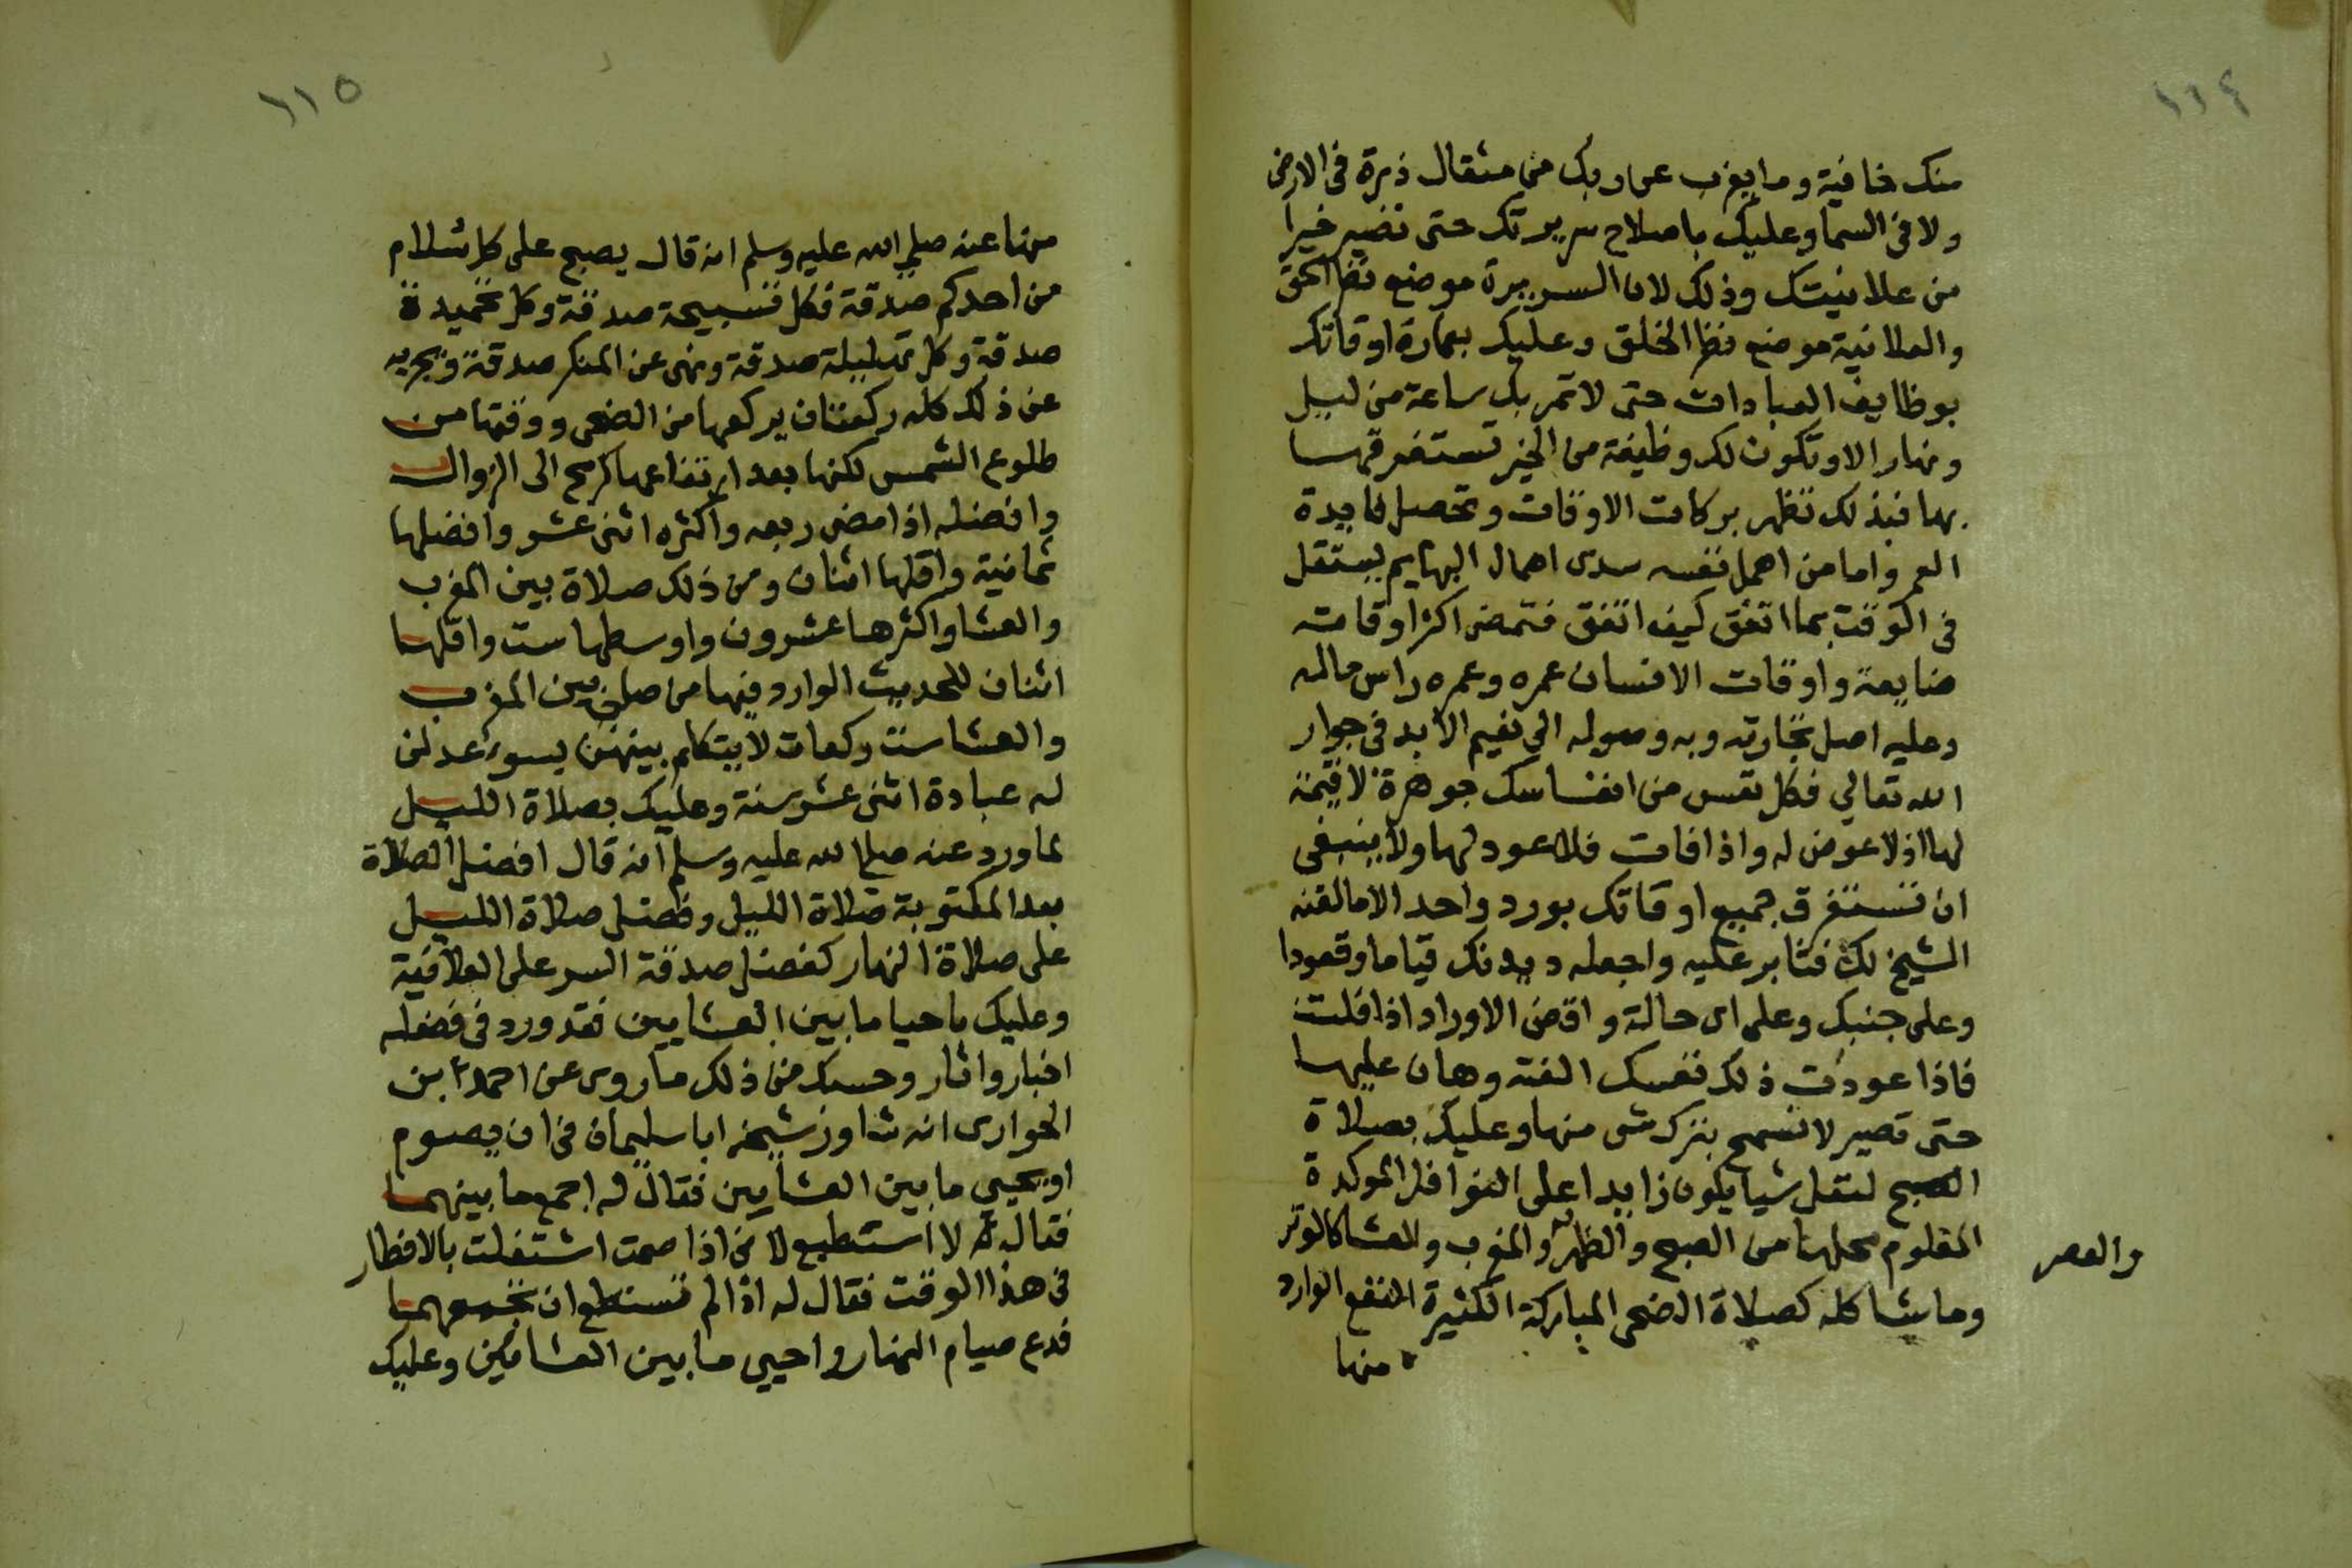 ١١٤
منك خافية وما يعزب عن ربك من مثقال ذرة فى الارض
ولا فى السما وعليك باصلاح سريرتك حتى تصير خيرا
من علانيتك وذلك لان السريرة موضع نظر الحق
والعلانية موضع نظر الخلق وعليك بعمارة اوقاتك
بوظايف العبادات حتى لا تمر بك ساعة من ليل
ونهار الا وتكون لك وظيفة من الخير تستغرقها
بها فبذلك تظهر بركات الاوقات وتحصل فايدة
العمر واما من اهمل نفسه سدى اهمال البهايم يستقل
فى الوقت بما اتفق كيف اتفق فتمضى اكثر اوقاته
ضايعة واوقات الانسان عمره وعمره راس ماله
وعليه اصل تجارته وبه وصوله الي نعيم الابد فى جوار
الله تعالي فكل نفس من انفاسك جوهرة لا قيمة
لها اذ لا عوض له واذا فات فلا عود لها ولا ينبغى
ان تستغرق جميع اوقاتك بورد واحد الا ما لقنه
الشيخ لك فثابر عليه واجعله ديدنك قياما وقعودا
وعلى جنبك وعلى اى حالة واقض الاوراد اذا فلتت
فاذا عودت ذلك نفسك الفته وهان عليها
حتى تصير لا تسمح بترك شى منها وعليك بصلاة
الصبح لتقل شيا يكون زايدا على النوافل الموكدة
المعلوم محلها من الصبح والظهر والمغرب والعشا كالوتر
والعصر
وما يشاكله كصلاة الضحى المباركة الكثيرة النفع الوارد
منها
١١٥
منها عنه صلي الله عليه وسلم انه قال يصبح على كل سلام
من احدكم صدقة فكل تسبيحة صدقة وكل تحميدة
صدقة وكل تهليلة صدقة ونهى عن المنكر صدقة ويجزيه
عن ذلك كله ركعتان يركعها من الضحى ووقتها من
طلوع الشمس لكنها بعد ارتفاعها كرمح الى الزوال
وافضله اذا مضى ربعه واكثره اثنى عشر وافضلها
ثمانية واقلها اثنان ومن ذلك صلاة بين المغرب
والعشا واكثرها عشرون واوسطها ست واقلها
اثنان للحديث الوارد فيها من صلى بين المغرب
والعشا ست ركعات لا يتكلم بينهن بسوء عدلن
له عبادة اثنى عشر سنة وعليك بصلاة الليل
لما ورد عنه صلى الله عليه وسلم انه قال افضل الصلاة
بعد المكتوبة صلاة الليل وفضل صلاة الليل
على صلاة النهار كفضل صدقة السر على العلانية
وعليك باحيا ما بين العشايين فقد ورد فى فضله
اخبار واثار وحسبك من ذلك ما روى عن احمد ابن
الحوارى انه شاور شيخه ابا سليمان فى ان يصوم
او يحيي ما بين العشايين فقال له اجمع ما بينهما
فقال له لا استطيع لانى اذا صمت اشتغلت بالافطار
فى هذا الوقت فقال له اذا لم تستطع ان تجمعهما
فدع صيام النهار واحيي ما بين العشايين وعليك